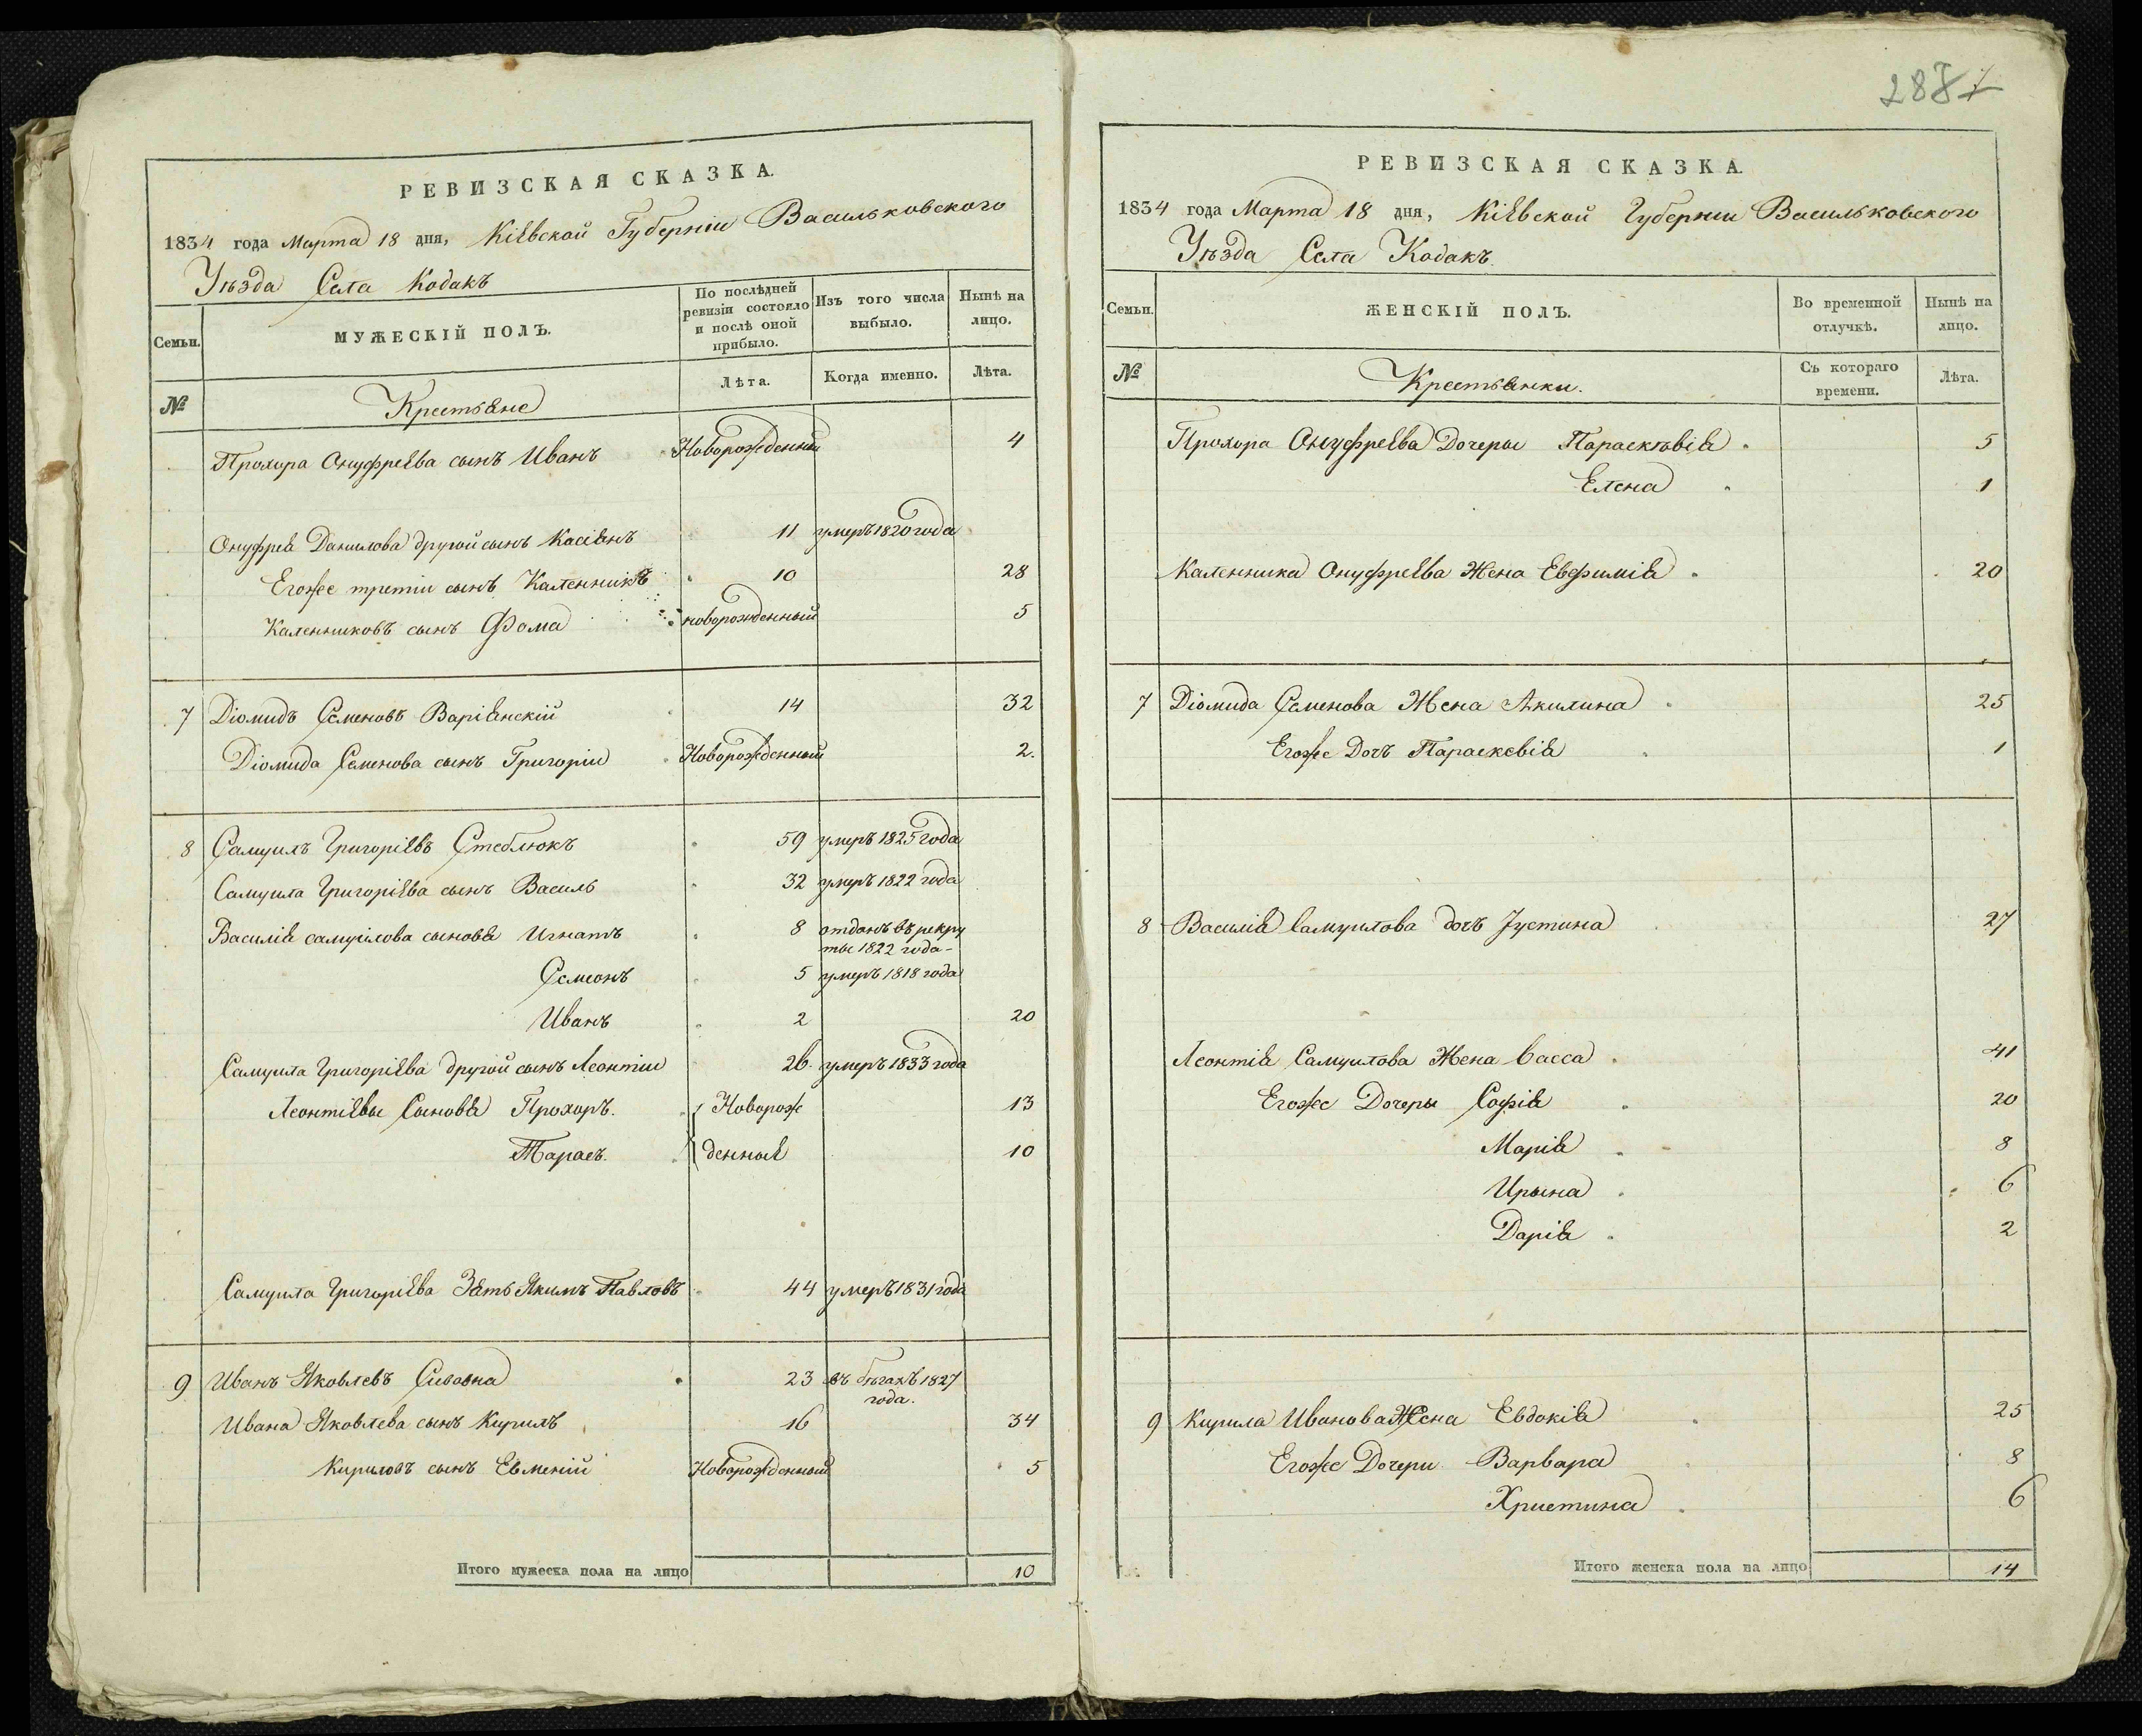 РЕВИЗСКАЯ СКАЗКА.
1834 года Марта 18 дня, Кіевской Губерніи Васильковскаго
Уѣзда Села Кодакъ
Семьи.
МУЖЕСКІЙ ПОЛЪ.
По послѣдней
ревизіи состояло
и послѣ оной
прибыло.
Изъ того числа
выбыло.
Нынѣ на
лицо.
№
Крестьяне
Лѣта.
Когда именно.
Лѣта.
Прохора Онуфреева сынъ Иванъ Новорожденный 4
Онуфрея Данилова другой сынъ Касіянъ 11 умеръ 1820 года
Егоже третіи сынъ Каленникъ 10 28
Каленниковъ сынъ Фома новорожденный 5
7 Діомидъ Семеновъ Варіянскій 14 32
Діомида Семенова сынъ Григоріи Новорожденный 2.
8 Самуилъ Григоріевъ Стеблюкъ 59 умеръ 1825 года
Самуила Григоріева сынъ Василь 32 умеръ 1822 года
Василія самуілова сыновя Игнатъ 8 отданъ въ рекру
ты 1822 года
Семеонъ 5 умеръ 1818 года
Иванъ 2 20
Самуила Григоріева другой сынъ Леонтіи 26 умеръ 1833 года
Леонтіевы Сыновя Прохоръ. Новорож 13
Тарасъ. денныя 10
Самуила Григоріева Зять Якимъ Павловъ 44 умеръ 1831 года
9 Иванъ Яковлевъ 23 въ бѣгахъ 1827
года.
Ивана Яковлева сынъ Кирилъ 16 34
Кириловъ сынъ Евменій Новорожденный 5
Итого мужеска пола на лицо 10
РЕВИЗСКАЯ СКАЗКА.
1834 года Марта 18 дня, Кіевской Губерніи Васильковского
Уѣзда Села Кодакъ
Семьи.
ЖЕНСКІЙ ПОЛЪ.
Во временной
отлучкѣ.
Нынѣ на
лицо.
№
Крестьянки.
Съ котораго
времени.
Лѣта.
Прохора Онуфреева Дочеры Параскѣвія 5
Елена 1
Каленника Онуфреева Жена Евфимія 20
7 Діомида Семенова Жена Акилина 25
Егоже Дочъ Параскевія 1
8 Василія Самуилова дочъ Іустина 27
Леонтія Самуилова Жена Васса 41
Егоже Дочеры Софія 20
Марія 8
Ирына 6
Дарія 2
9 Кирила Иванова Жена Евдокія 25
Егоже Дочери Варвара 8
Христина 6
Итого женска пола на лицо 14